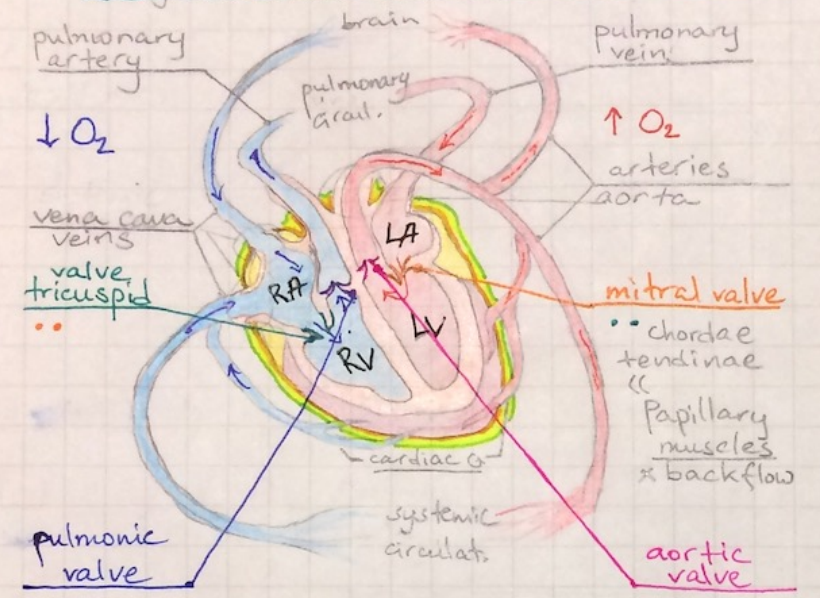 brain
pulmonary
artery
pulmonary
vein
pulmonary
circul.
↓ O₂
↑ O₂
arteries
aorta
vena cava
veins
valve
tricuspid
LA
RA
LV
RV
mitral valve
chordae
tendinae
<<
papillary
muscles
backflow
cardiac
systemic
circulat.
pulmonic
valve
aortic
valve